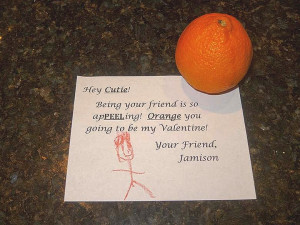 Hey Cutie!
Being your friend is so
apPEELing! Orange you
going to be my Valentine!
Your Friend,
Jamison